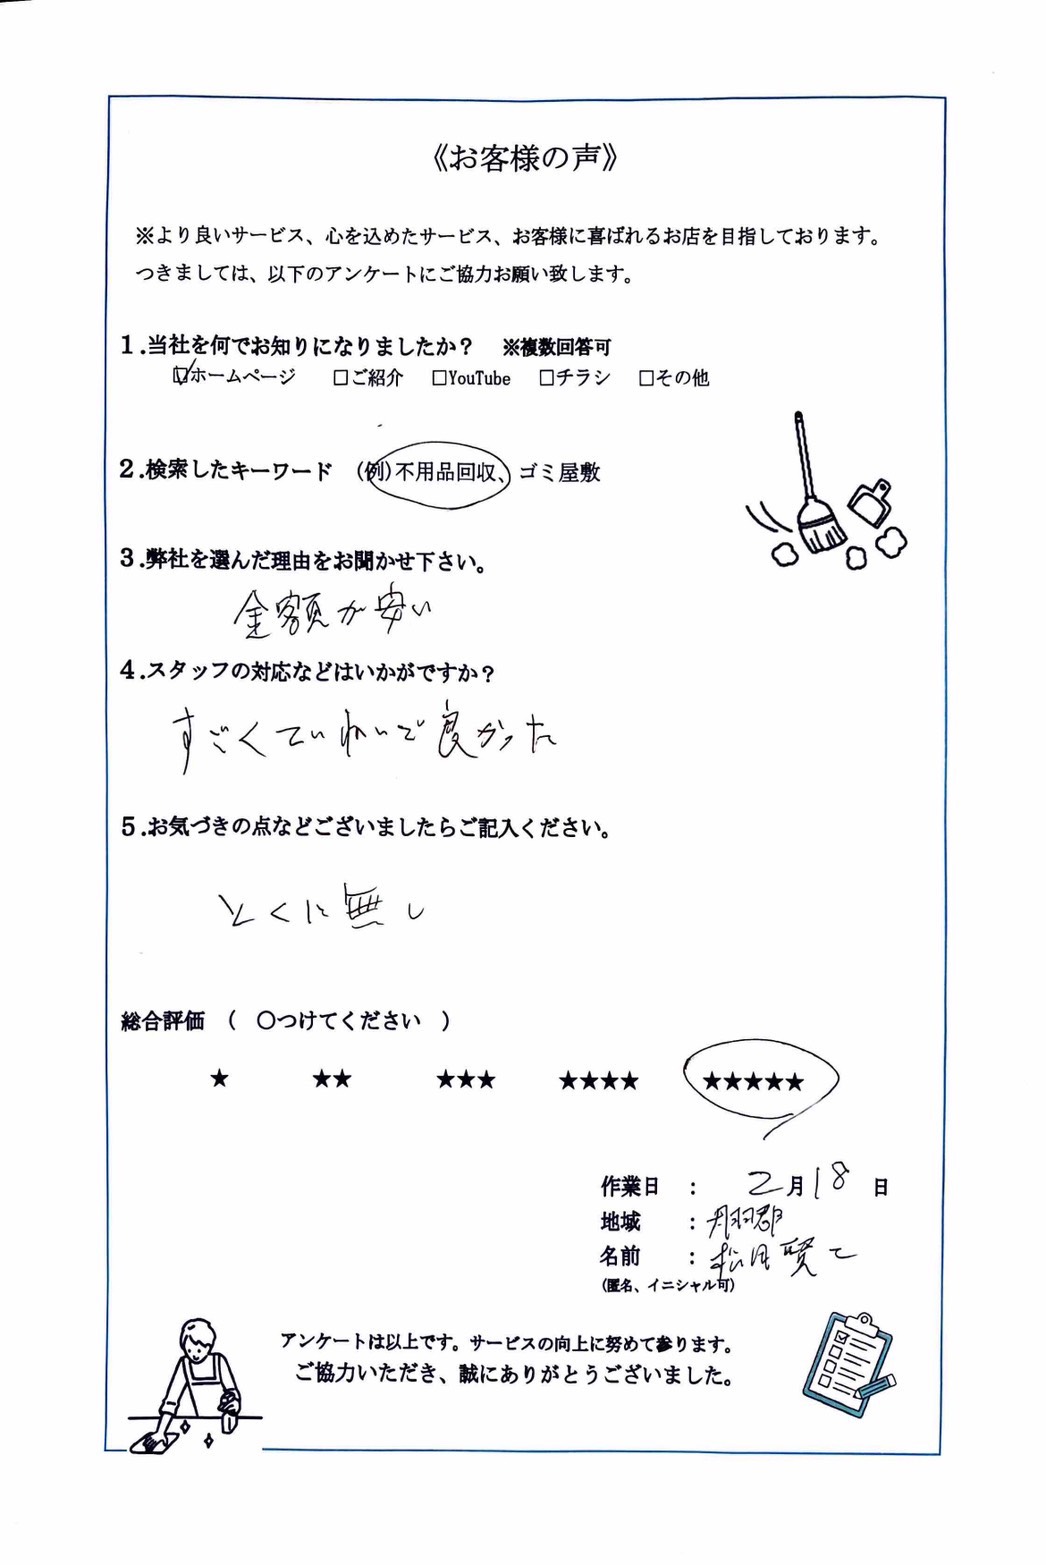 《お客様の声》
※より良いサービス、心を込めたサービス、お客様に喜ばれるお店を目指しております。
つきましては、以下のアンケートにご協力お願い致します。
1.当社を何でお知りになりましたか？　※複数回答可
☑ホームページ　□ご紹介　□YouTube　□チラシ　□その他
2.検索したキーワード　(例)不用品回収、ゴミ屋敷
3.弊社を選んだ理由をお聞かせ下さい。
金額が安い
4.スタッフの対応などはいかがですか？
すごくていねいで良かった
5.お気づきの点などございましたらご記入ください。
とくに無し
総合評価　(　〇つけてください　)
★　★★　★★★　★★★★　★★★★★
作業日　：　2月18日
地域　：丹羽郡
名前　：松
(匿名、イニシャル可)
アンケートは以上です。サービスの向上に努めて参ります。
ご協力いただき、誠にありがとうございました。